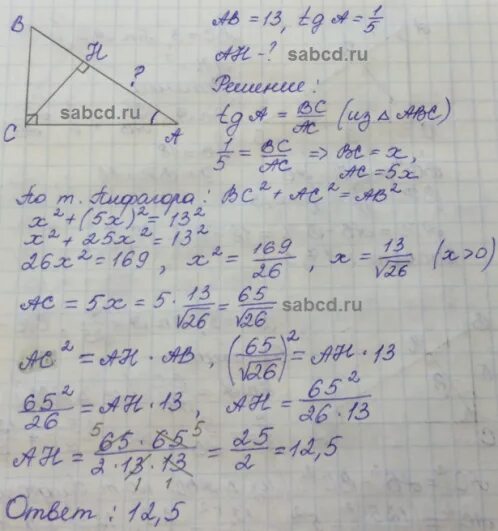 AB = 13, tg A = 1/5
AH - ?
sabcd.ru
Решение:
B
H
?
sabcd.ru
C
A
tg A = BC/AC (из △ ABC)
1/5 = BC/AC ⇒ BC = x,
AC = 5x
По т. Пифагора: BC² + AC² = AB²
x² + (5x)² = 13²
x² + 25x² = 13²
26x² = 169, x² = 169/26, x = 13/√26 (x>0)
AC = 5x = 5 · 13/√26 = 65/√26
sabcd.ru
AC² = AH · AB, (65/√26)² = AH · 13
65²/26 = AH · 13, AH = 65²/(26 · 13)
AH = (⁵65 · 65⁵)/(2 · 13₁ · 13₁) = 25/2 = 12,5
Ответ: 12,5